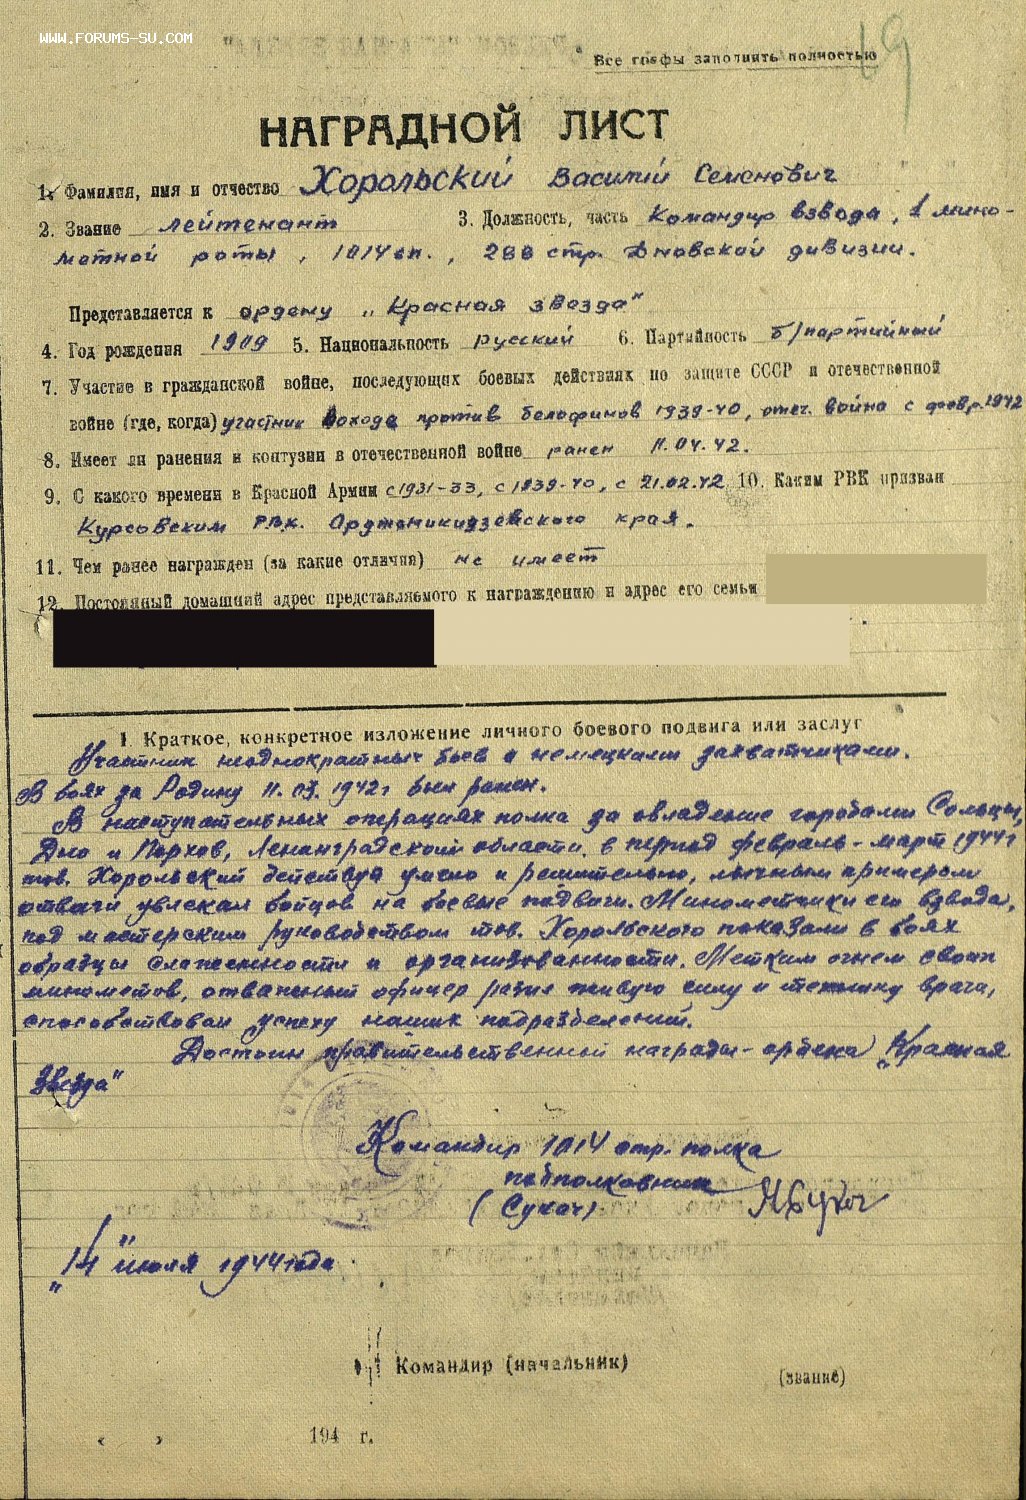 WWW.FORUMS-SU.COM
69
Все графы заполнить полностью
НАГРАДНОЙ ЛИСТ
1. Фамилия, имя и отчество Хорольский Василий Семенович
2. Звание лейтенант 3. Должность, часть Командир взвода, 1 мино-
метной роты, 1014 сп., 288 стр. Дновской дивизии.
Представляется к ордену „Красная звезда"
4. Год рождения 1909 5. Национальность русский 6. Партийность б/партийный
7. Участие в гражданской войне, последующих боевых действиях по защите СССР и отечественной
войне (где, когда) участник похода против белофинов 1939-40, отеч. война с февр. 1942
8. Имеет ли ранения и контузии в отечественной войне ранен 11.04.42.
9. С какого времени в Красной Армии с 1931-33, с 1939-40, с 21.02.42 10. Каким РВК призван
Курсовским РВК. Орджоникидзевского края.
11. Чем ранее награжден (за какие отличия) не имеет
12. Постоянный домашний адрес представляемого к награждению и адрес его семьи
I. Краткое, конкретное изложение личного боевого подвига или заслуг
Участник неоднократных боев с немецкими захватчиками.
В боях за Родину 11. 1942г был ранен.
В наступательных операциях полка за овладение городами Сольцы,
Дно и Порхов, Ленинградской области, в период февраль-март 1944г
тов. Хорольский действуя умело и решительно, личным примером
отваги увлекал бойцов на боевые подвиги. Минометчики его взвода,
под мастерским руководством тов. Хорольского показали в боях
образцы слаженности и организованности. Метким огнем своих
минометов, отважный офицер разил живую силу и технику врага,
способствовал успеху наших подразделений.
Достоин правительственной награды - ордена „Красная
Звезда"
Командир 1014 стр. полка
подполковник
(Сукач)
„14" июля 1944 года
Командир (начальник)
(звание)
194 г.